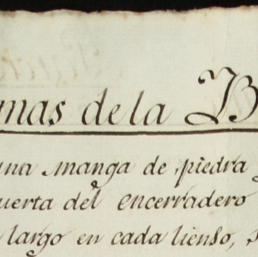 mas de la B
una manga de piedra
uerta del encerradero
largo en cada lienso,